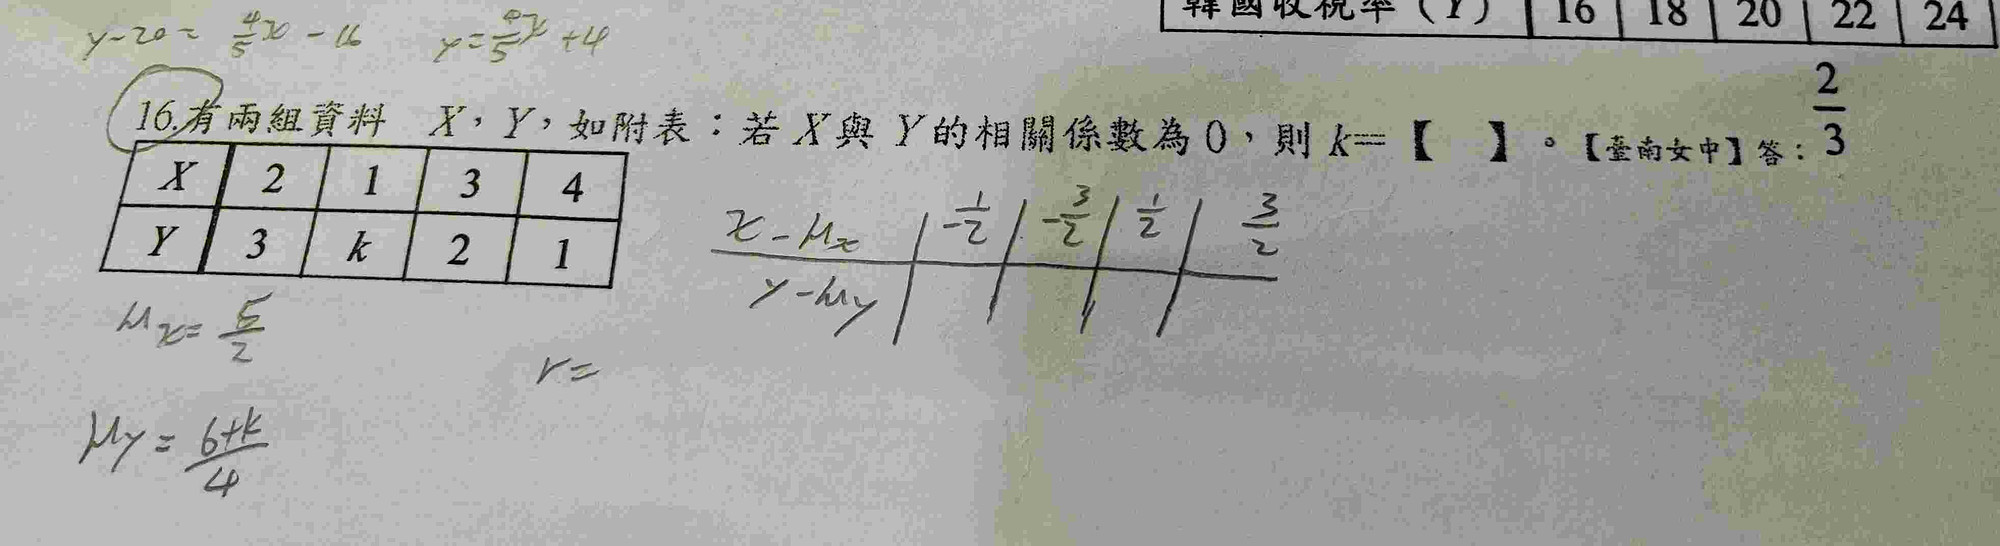 韓國收視率（Y） 16 18 20 22 24
y-20= 4/5x -16 y= 4/5x +4
16.有兩組資料 X，Y，如附表：若X與Y的相關係數為0，則k=【 】。【臺南女中】答：2/3
X 2 1 3 4
Y 3 k 2 1
x-μx -1/2 -3/2 1/2 3/2
y-μy
μx= 5/2
r=
μy= 6+k/4